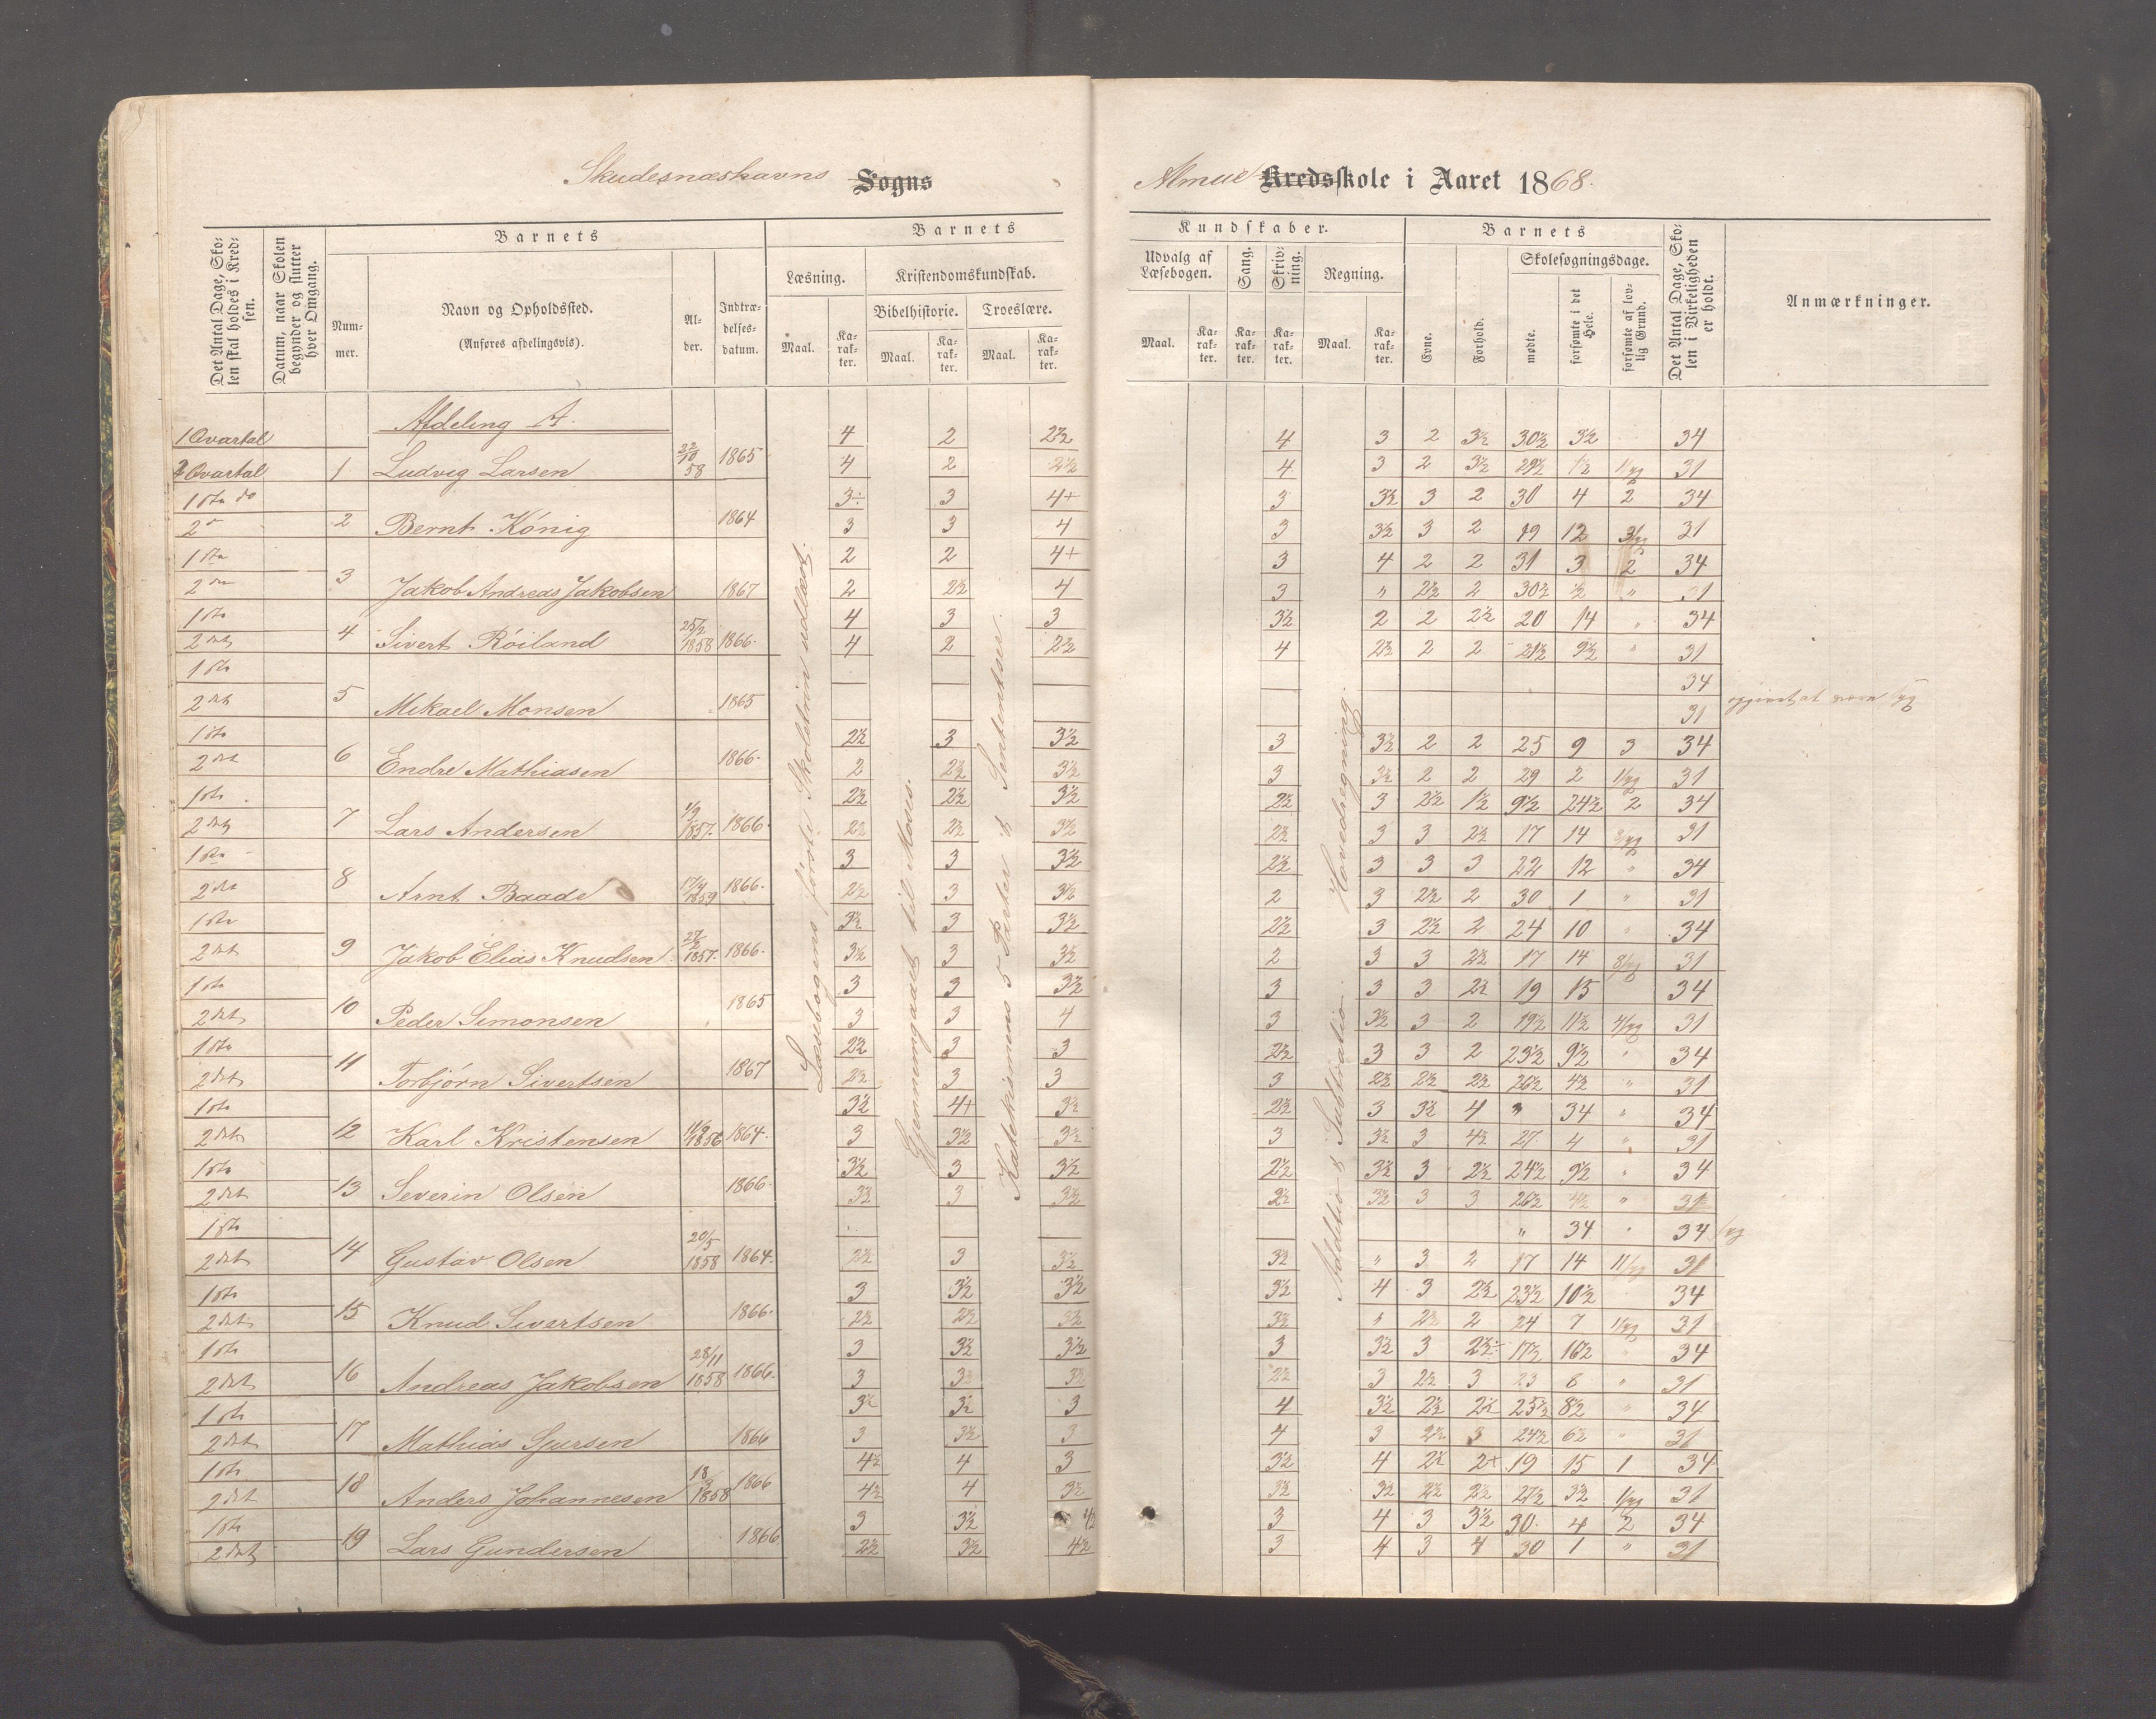 Skudesnæshavns Sogns
Almue Kredsskole i Aaret 1868.
Det Antal Dage, Skolen skal holdes i Kredsen.
Datum, naar Skolen begynder og slutter hver Omgang.
Barnets
Nummer.
Navn og Opholdssted.
(Anføres afdelingsvis).
Alder.
Indtrædelsesdatum.
Barnets
Læsning.
Maal.
Karakter.
Kristendomskundskab.
Bibelhistorie.
Maal.
Karakter.
Troeslære.
Maal.
Karakter.
Kundskaber.
Udvalg af Læsebogen.
Maal.
Karakter.
Sang.
Karakter.
Skrivning.
Karakter.
Regning.
Maal.
Karakter.
Barnets
Evne.
Forhold.
Skolesøgningsdage.
mødte.
forsømte i det Hele.
forsømte af lovlig Grund.
Det Antal Dage, Skolen i Virkeligheden er holdt.
Anmærkninger.
Afdeling A.
1 Qvartal 4 2 2½ 4 3 2 3½ 30½ 3½ 34
2 Qvartal 1 Ludvig Larsen 22/10 58 1865 4 2 2½ 4 3 2 3½ 29½ 1½ 1/syg 31
1ste do 3÷ 3 4+ 3 3½ 3 2 30 4 2 34
2 2 Bernt König 1864 3 3 4 3 3½ 3 2 19 12 3/syg 31
1ste 2 2 4+ 3 4 2 2 31 3 2 34
2 3 Jakob Andreas Jakobsen 1867 2 2½ 4 3 " 2½ 2 30½ ½ " 31
1ste 4 3 3 3½ 2 2 2½ 20 14 " 34
2det 4 Sivert Röiland 25/2 1858 1866 4 2 2½ 4 2½ 2 2 21½ 9½ " 31
1ste 34
2det 5 Mikael Monsen 1865 31 opgivet at være syg
1ste 2½ 3 3½ 3 3½ 2 2 25 9 3 34
2det 6 Endre Mathiasen 1866 2 2½ 3½ 3 3½ 2 2 29 2 1/syg 31
1ste 2½ 2½ 3½ 2½ 3 2½ 1½ 9½ 24½ 2 34
2det 7 Lars Andersen 1/9 1857 1866 2½ 2½ 3½ 2½ 3 3 2½ 17 14 3/syg 31
1ste 3 3 3½ 2½ 3 3 3 22 12 " 34
2det 8 Arnt Baade 17/4 1859 1866 2½ 3 3½ 2 3 2½ 2 30 1 " 31
1ste 3½ 3 3½ 2½ 3 2½ 2 24 10 " 34
2det 9 Jakob Elias Knudsen 27/2 1857 1866 3½ 3 3½ 2 3 3 2½ 17 14 8/syg 31
1ste 3 3 3½ 3 3 3 2½ 19 15 34
2det 10 Peder Simonsen 1865 3 3 4 3 3½ 3 2 19½ 11½ 4/syg 31
1ste 2½ 3 3 2½ 3 3 2 23½ 9½ " 34
2det 11 Torbjørn Sivertsen 1867 2½ 3 3 3 2½ 2½ 2½ 26½ 4½ " 31
1ste 3½ 4+ 3½ 2½ 3 3½ 4 " 34 " 34
2det 12 Karl Kristensen 11/9 1856 1864 3 3½ 3½ 3 3½ 3 4½ 27 4 " 31
1ste 3½ 3 3½ 2½ 3½ 3 2½ 24½ 9½ " 34
2det 13 Severin Olsen 1866 3½ 3 3½ 2½ 3½ 3 3 26½ 4½ " 31
1ste " 34 " 34 syg
2det 14 Gustav Olsen 20/5 1858 1864 2½ 3 3½ 3½ " 3 2 17 14 11/syg 31
1ste 3 3½ 3½ 3½ 4 3 2½ 23½ 10½ 34
2det 15 Knud Sivertsen 1866 2½ 2½ 3½ 3½ " 2½ 2 24 7 1/syg 31
1ste 3 3½ 3½ 3 3½ 3 2½÷ 17½ 16½ " 34
2det 16 Andreas Jakobsen 28/11 1858 1866 3 3½ 3½ 2½ 3 2½ 3 23 8 " 31
1ste 3½ 3½ 3 4 3½ 2½ 2½ 25½ 8½ " 34
2det 17 Mathias Sjursen 1866 3 3½ 3 4 3 2½ 3 24½ 6½ " 31
1ste 4½ 4 3 3½ 4 2½ 2+ 19 15 1 34
2det 18 Anders Johannesen 1858 1866 4½ 4 3½ 3½ 3½ 2½ 2½ 27½ 3½ 1/syg 31
1ste 3 3½ 4½ 3 4 3 3½ 30 4 2 34
2det 19 Lars Gundersen 1866 2½ 3½ 4½ 3 4 3 4 30 1 " 31
Læsebogens förste Skoletrin udlæst.
Gjennemgaaet til Moses.
Katekismens 5 Parter & Sententser.
Additio & Subtratio. Hovedregning.